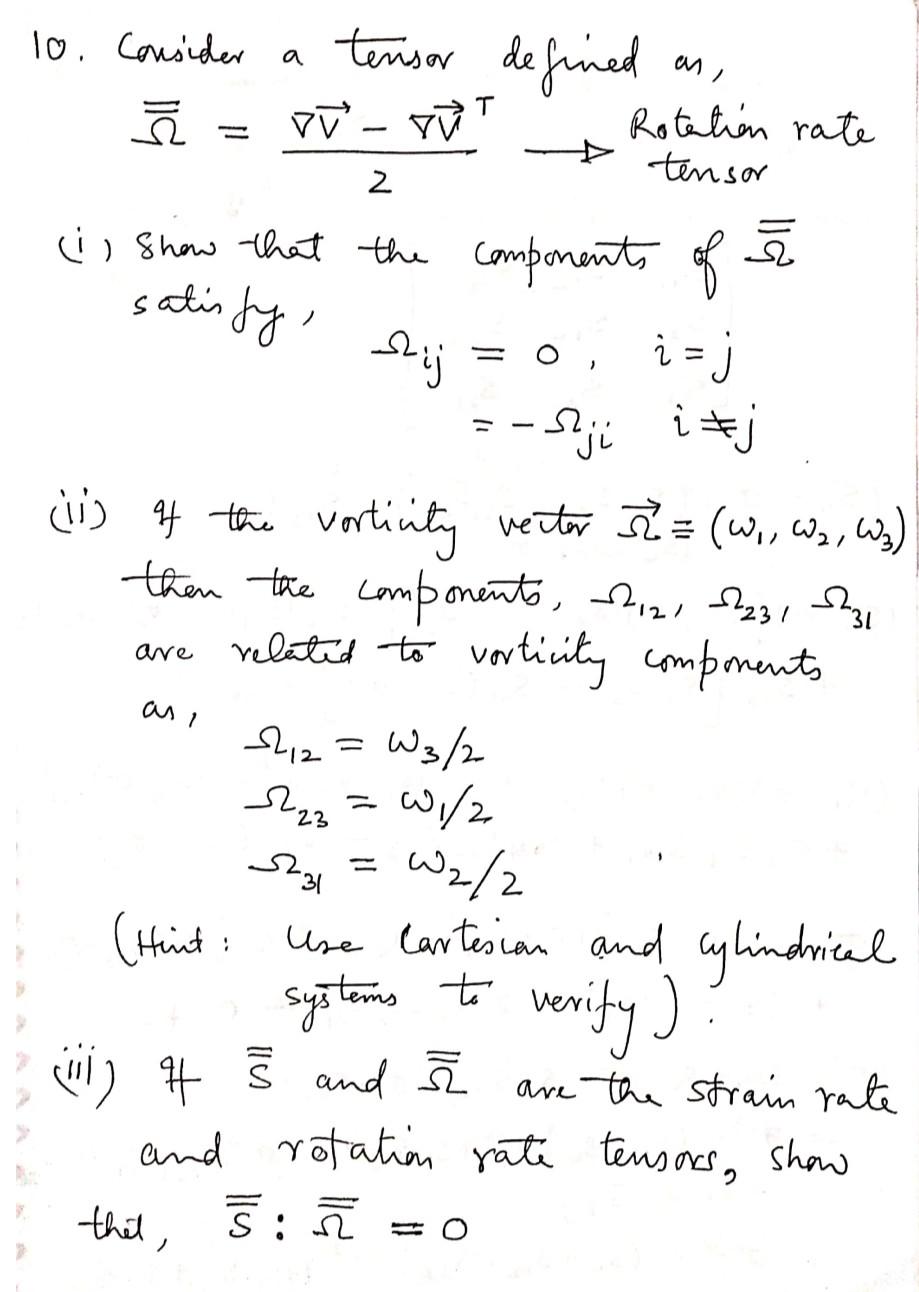 10. Consider a tensor defined as,
Ω̿ = (∇V⃗ − ∇V⃗ᵀ)/2 → Rotation rate tensor
(i) Show that the components of Ω̿
satisfy,
Ωij = 0, i = j
= − Ωji i ≠ j
(ii) If the vorticity vector Ω⃗ ≡ (ω₁, ω₂, ω₃)
then the components, Ω₁₂, Ω₂₃, Ω₃₁
are related to vorticity components
as,
Ω₁₂ = ω₃/2
Ω₂₃ = ω₁/2
Ω₃₁ = ω₂/2
(Hint: Use Cartesian and cylindrical
systems to verify).
(iii) If S̿ and Ω̿ are the strain rate
and rotation rate tensors, show
that, S̿ : Ω̿ = 0